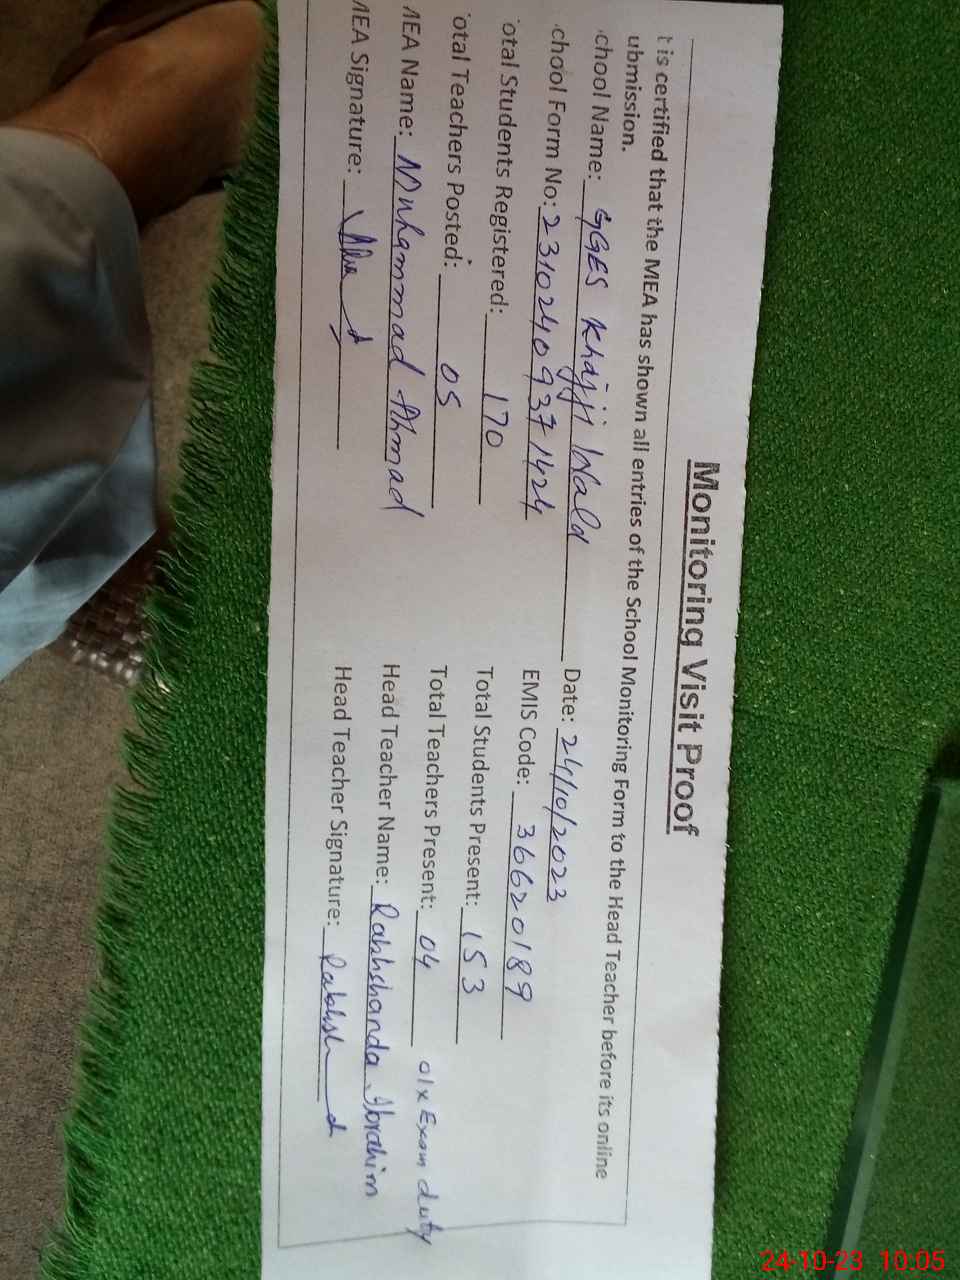 Monitoring Visit Proof
t is certified that the MEA has shown all entries of the School Monitoring Form to the Head Teacher before its online
ubmission.
chool Name: GGES Khajji Wala Date: 24/10/2023
chool Form No: 23102409371424 EMIS Code: 36620189
otal Students Registered: 170 Total Students Present: 153
otal Teachers Posted: 05 Total Teachers Present: 04 01x Exam duty
MEA Name: Muhammad Ahmad Head Teacher Name: Rakhshanda Ibrahim
MEA Signature: Head Teacher Signature:
24-10-23 10:05